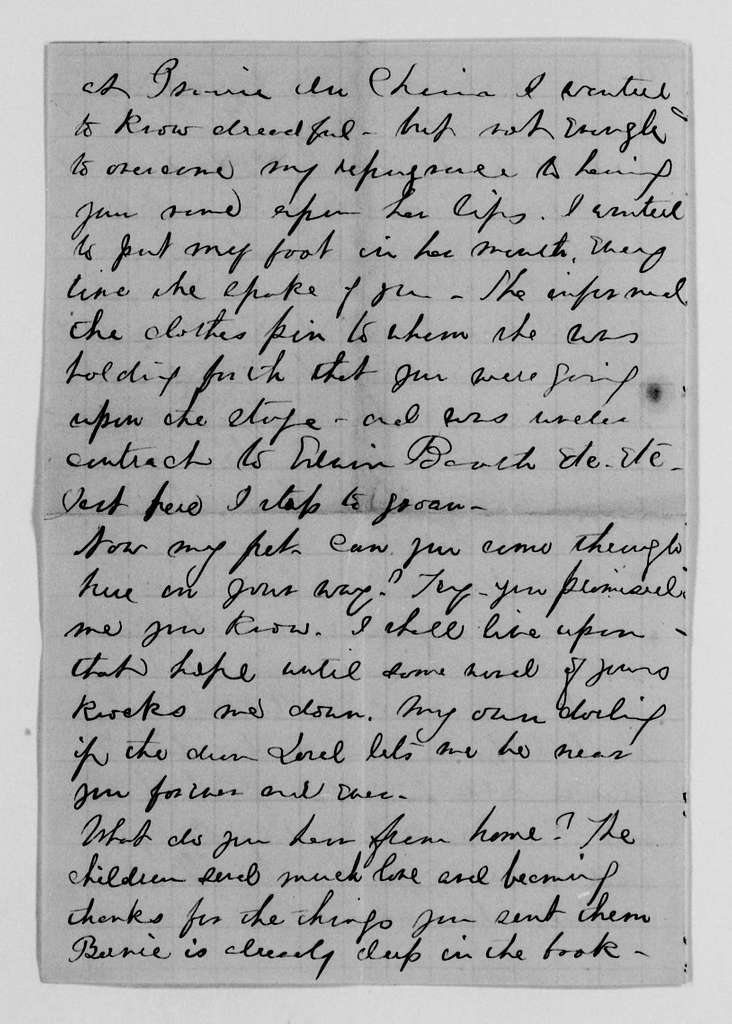 at Prairie du Chien I wanted
to know dreadful - but not enough
to overcome my repugnance to having
your name upon her lips. I wanted
to put my foot in her mouth, every
time she spoke of you - She informed
the clothes pin to whom she was
holding forth that you were going
upon the stage - and was under
contract to Edwin Booth &c. &c -
Just here I stop to groan -
Now my pet. can you come through
here on your way? Try - you promised
me you know. I shall live upon -
that hope until some word of yours
knocks me down. My own darling
if the dear Lord lets me be near
you forever and ever -
What do you hear from home? The
children send much love and beaming
thanks for the things you sent them
Bernie is already deep in the book -